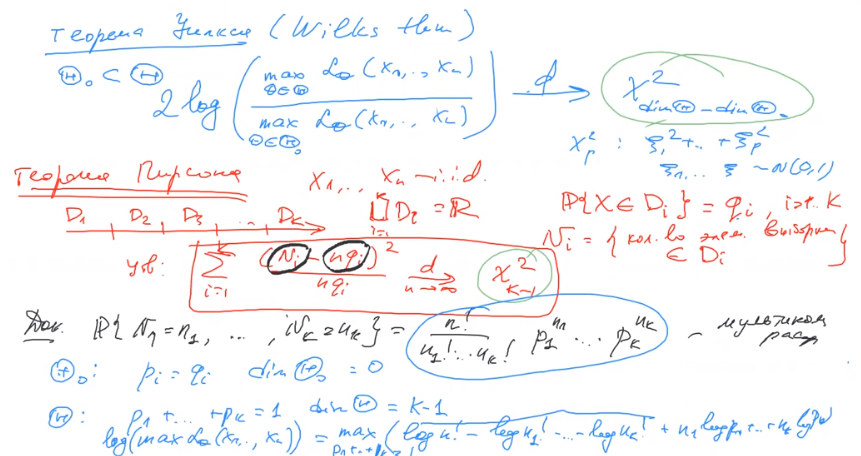 Теорема Уилкса (Wilks thm)
Θ₀ ⊂ Θ
2 log ( max_{θ∈Θ} L_θ (x₁,.., xₙ) / max_{θ∈Θ₀} L_θ (x₁,.., xₙ) ) →^d χ²_{dim Θ - dim Θ₀}
χ²_p : ξ₁² + .. + ξ_p²
ξ₁,.. ξ ~ N(0,1)
Теорема Пирсона
x₁,.. xₙ - i.i.d.
D₁ D₂ D₃ ... D_K
⨆_{i=1}^{K} D_i = ℝ
ℙ{X ∈ D_i} = q_i , i=1..K
N_i = { кол-во элем. выборки ∈ D_i }
Утв: ∑_{i=1}^{K} (N_i - nq_i)² / nq_i →^d_{n→∞} χ²_{K-1}
Док. ℙ{ N₁ = n₁, ..., N_K = n_K } = n! / (n₁! ... n_K!) p₁^{n₁} ... p_K^{n_K} - мультином распр
Θ₀: p_i = q_i dim Θ₀ = 0
Θ: p₁ + ... + p_K = 1 dim Θ = K-1
log(max L_θ(x₁,.., xₙ)) = max_{p₁+..+p_K=1} (log n! - log n₁! - ... - log n_K! + n₁ log p₁ + .. + n_K log p_K)